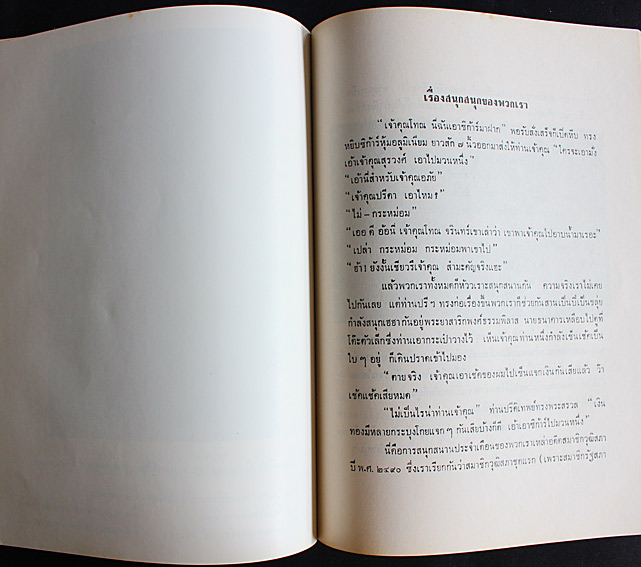 เรื่องสนุกสนุกของพวกเรา
“เจ้าคุณโทณ นี่ฉันเอาซิก้าร์มาฝาก” พอรับสั่งเสร็จก็เปิดหีบ ทรง
หยิบซิก้าร์หุ้มอลูมิเนียม ยาวสัก ๗ นิ้วออกมาส่งให้ท่านเจ้าคุณ “ใครจะเอามั่ง
เอ้าเจ้าคุณสุรวงศ์ เอาไปมวนหนึ่ง”
“เอ้านี่สำหรับเจ้าคุณอภัย”
“เจ้าคุณปรีดา เอาไหม?”
“ไม่ – กระหม่อม”
“เออ ดี อ้อนี่ เจ้าคุณโทณ จรินทร์เขาเล่าว่า เขาพาเจ้าคุณไปอาบน้ำมาเรอะ”
“เปล่า กระหม่อม กระหม่อมพาเขาไป”
“ฮ้า! ยังงั้นเชียวรึเจ้าคุณ สำมะคัญจริงแฮะ”
แล้วพวกเราทั้งหมดก็หัวเราะสนุกสนานกัน ความจริงเราไม่เคย
ไปกันเลย แต่ท่านปรีๆ ทรงก่อเรื่องขึ้นพวกเราก็ช่วยกันสานเป็นปี่เป็นขลุ่ย
กำลังสนุกเฮฮากันอยู่พระยาสาริกพงศ์ธรรมพิลาส นายธนาคารเหลือบไปดูที่
โต๊ะตัวเล็กซึ่งท่านเอากระเป๋าวางไว้ เห็นเจ้าคุณท่านหนึ่งกำลังเซ็นเช็คเป็น
ใบ ๆ อยู่ ก็เดินปราดเข้าไปมอง
“ตายจริง เจ้าคุณเอาเช็คของผมไปเซ็นแจกเงินกันเสียแล้ว ว้า
เช็คแช้คเสียหมด”
“ไม่เป็นไรน่าท่านเจ้าคุณ” ท่านปรีดิเทพย์ทรงพระสรวล “เงิน
ทองมีหลายกระบุงโกยแจก ๆ กันเสียบ้างก็ดี เอ้าเอาซิก้าร์ไปมวนหนึ่ง”
นี่คือการสนุกสนานประจำเดือนของพวกเราเหล่าอดีตสมาชิกวุฒิสภา
ปี พ.ศ. ๒๔๙๐ ซึ่งเราเรียกกันว่าสมาชิกวุฒิสภาชุดแรก (เพราะสมาชิกรัฐสภา